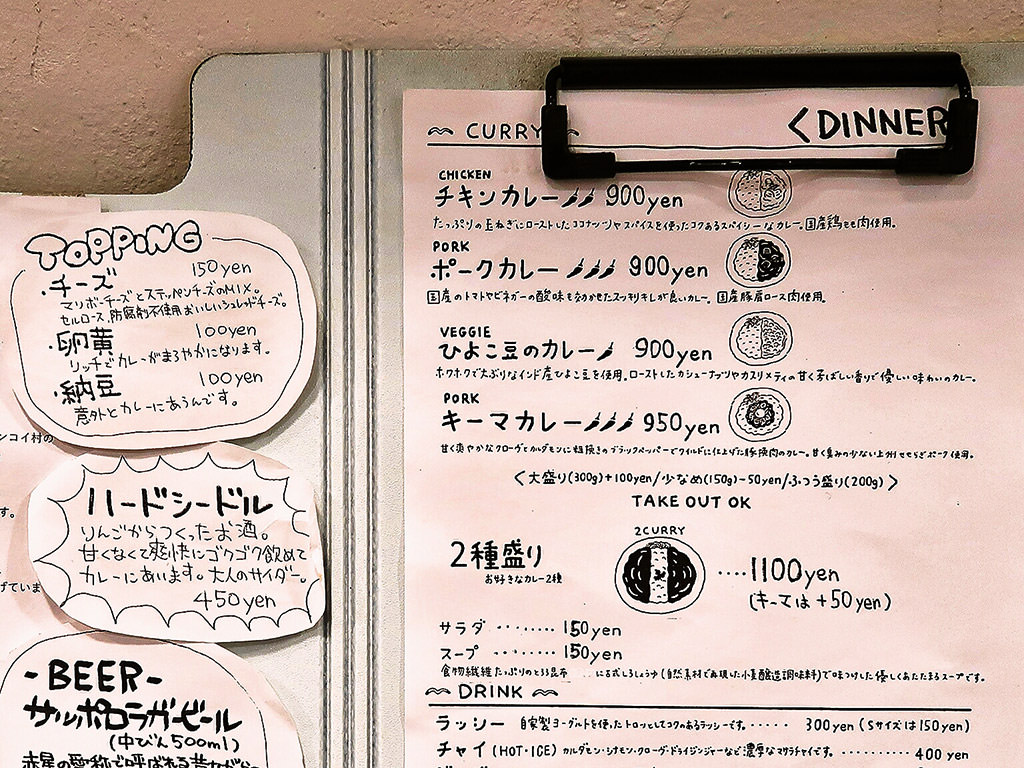 TOPPING
・チーズ 150yen
マリボーチーズとステッペンチーズのMIX。
セルロース、防腐剤不使用おいしいシュレッドチーズ。
・卵黄 100yen
リッチでカレーがまろやかになります。
・納豆 100yen
意外とカレーにあうんです。
ンコイ村の
す。
げていま
ハードシードル
りんごからつくったお酒。
甘くなくて爽快にゴクゴク飲めて
カレーにあいます。大人のサイダー。
450yen
-BEER-
サッポロラガービール
(中びん500ml)
赤星の愛称で呼ばれる昔ながら
CURRY
<DINNER
CHICKEN
チキンカレー 900yen
たっぷりの玉ねぎにローストしたココナッツやスパイスを使ったコクあるスパイシーなカレー。国産鶏もも肉使用。
PORK
ポークカレー 900yen
国産のトマトやビネガーの酸味を効かせたスッキリキレが良いカレー。国産豚肩ロース肉使用。
VEGGIE
ひよこ豆のカレー 900yen
ホクホクで大ぶりなインド産ひよこ豆を使用。ローストしたカシューナッツやカスリメティの甘く芳ばしい香りで優しい味わいのカレー。
PORK
キーマカレー 950yen
甘く爽やかなクローブとカルダモンに粗挽きのブラックペッパーでワイルドに仕上げた豚挽肉のカレー。甘く臭みの少ない上州せせらぎポーク使用。
<大盛り(300g)+100yen/少なめ(150g)-50yen/ふつう盛り(200g)>
TAKE OUT OK
2CURRY
2種盛り
お好きなカレー2種
····1100yen
(キーマは+50yen)
サラダ ········ 150yen
スープ ········ 150yen
食物繊維たっぷりのとろろ昆布 に古式しょうゆ(自然素材で再現した小麦醸造調味料)で味つけした優しくあたたまるスープです。
DRINK
ラッシー 自家製ヨーグルトを使ったトロッとしてコクのあるラッシーです。····· 300yen(Sサイズは150yen)
チャイ(HOT・ICE) カルダモン・シナモン・クローブ・ドライジンジャーなど濃厚なマサラチャイです。·········· 400yen